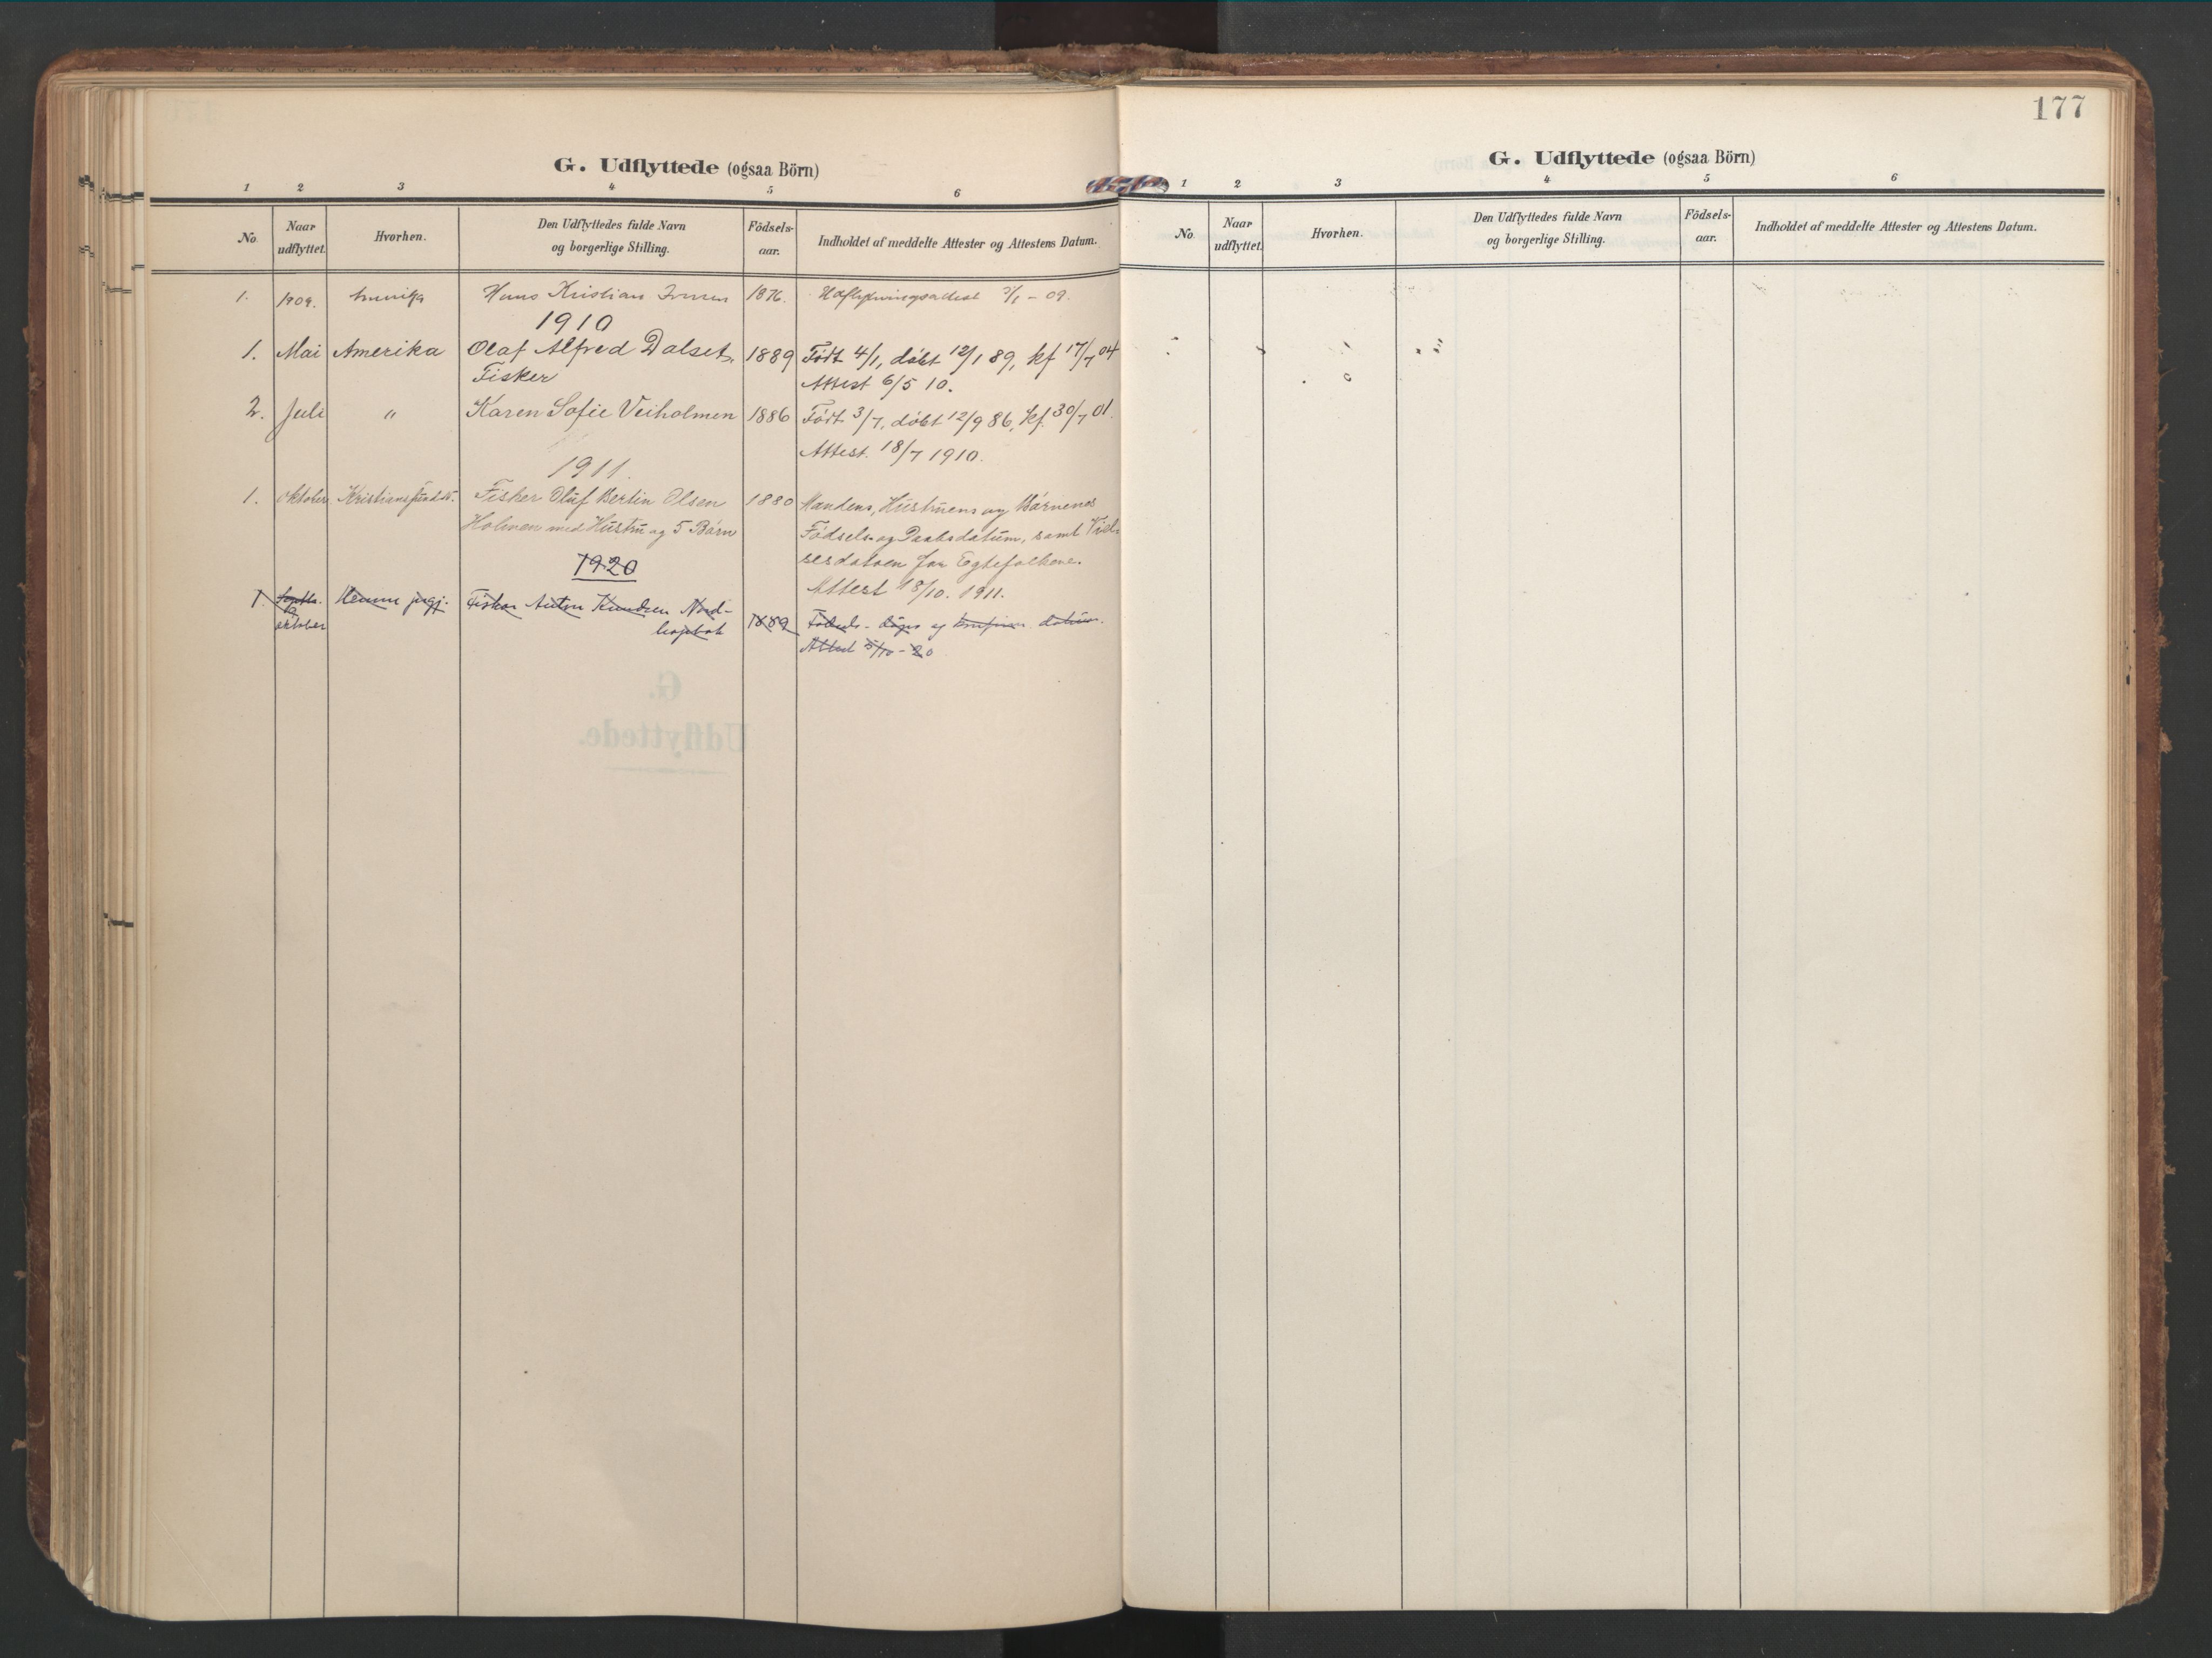 G. Udflyttede (ogsaa Börn)
1 2 3 4 5 6
No. Naar udflyttet. Hvorhen. Den Udflyttedes fulde Navn og borgerlige Stilling. Födsels-aar. Indholdet af meddelte Attester og Attestens Datum.
1. 1909. Amerika Hans Kristian 1876. Udflytningsattest /1 - 09.
1910
1. Mai Amerika Olaf Alfred Dalset, 1889 Født 4/1, døbt 12/1 89, kf 17/7 04
Fisker Attest 6/5 10.
2. Juli " Karen Sofie Veiholmen 1886 Født 3/7, døbt 12/9 86, kf. 30/7 01.
Attest. 18/7 1910.
1911.
1. Oktober Kristianssund N. Fisker Oluf Bertin Olsen 1880 Mandens, Hustruens og Børnenes
Holmen med Hustru og 5 Børn Fødsels- og Daabsdatum, samt Viel-
sesdatoen for Egtefolkene.
Attest 18/10. 1911.
1920
1. Septbr. Hemne prgj. Fisker Anton Knudsen Nord-
oktober 1889 Fødsels- daaps og konfirm. datum.
Attest 5/10 - 20
177
G. Udflyttede (ogsaa Börn)
1 2 3 4 5 6
No. Naar udflyttet. Hvorhen. Den Udflyttedes fulde Navn og borgerlige Stilling. Födsels-aar. Indholdet af meddelte Attester og Attestens Datum.